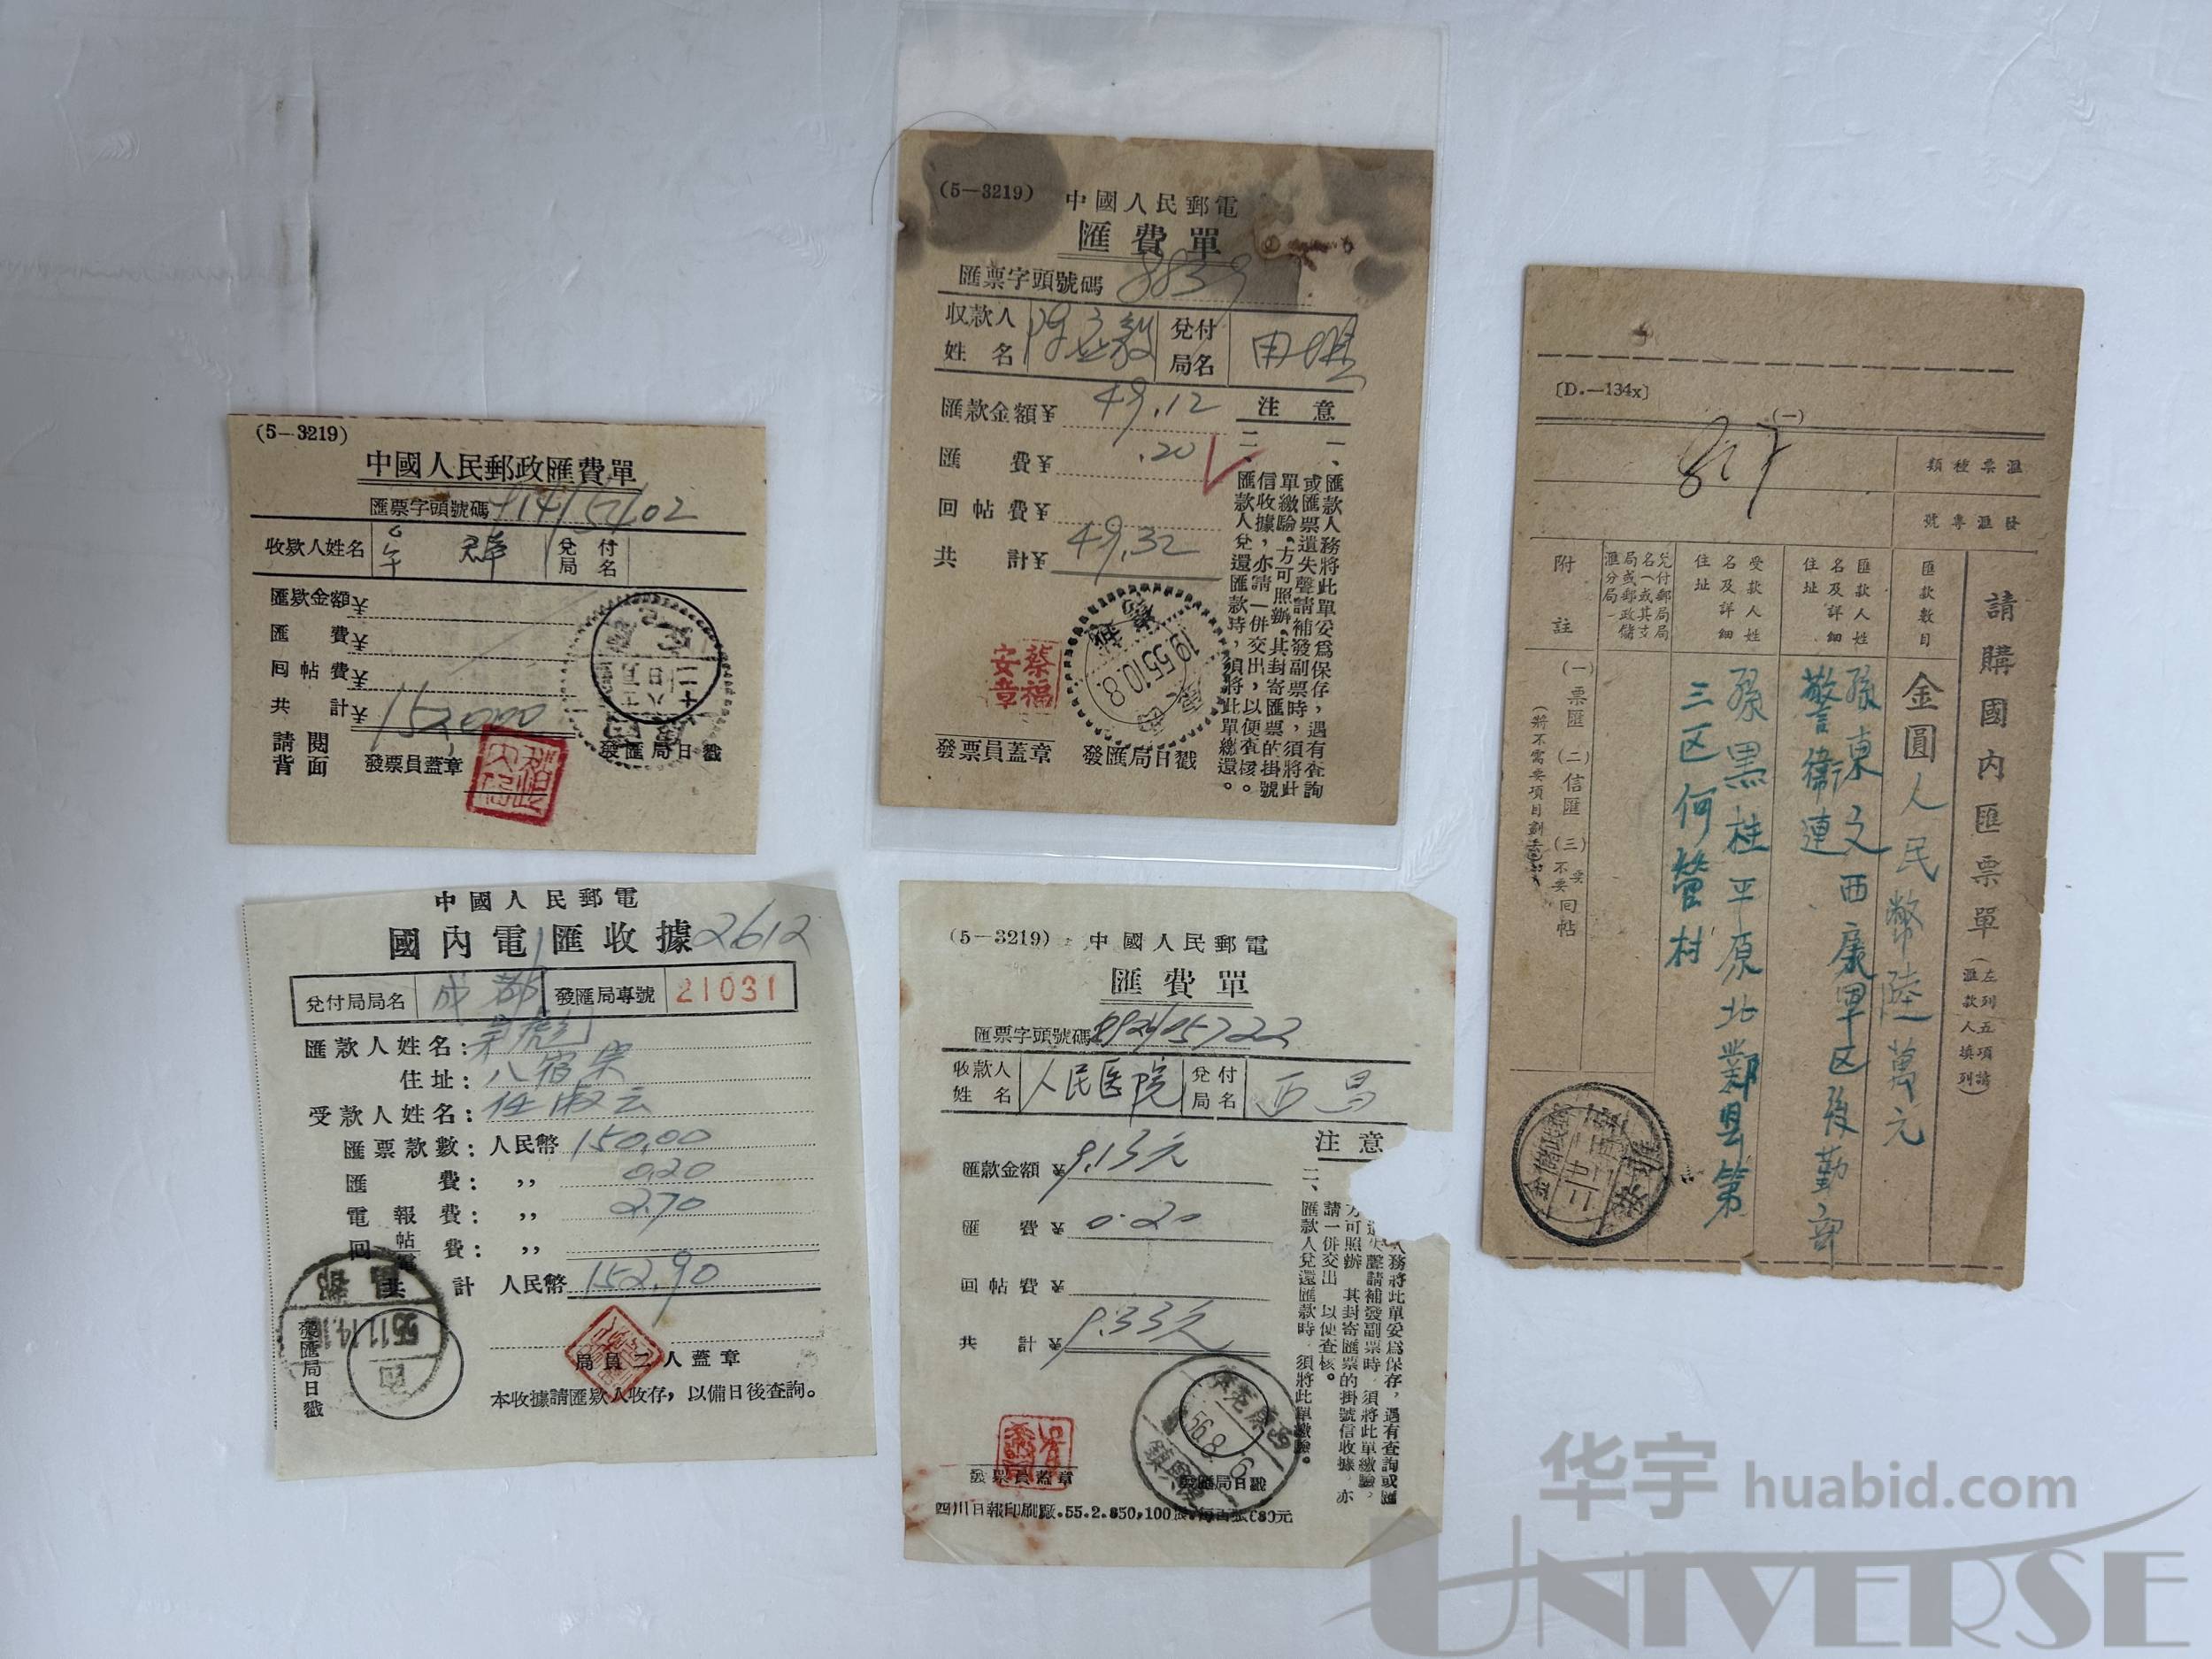 (5—3219)
中國人民郵政匯費單
匯票字頭號碼
收欵人姓名
兌付局名
匯欵金額¥
匯費¥
回帖費¥
共計¥
請閱背面
發票員蓋章
發匯局日戳
(5—3219)
中國人民郵電
匯費單
匯票字頭號碼 8839
收款人姓名
兌付局名
匯款金額¥ 49.12
匯費¥ .20
回帖費¥
共計¥ 49.32
注意
一、匯款人務將此單妥爲保存，遇有查詢
或匯票遺失聲請補發副票時，須將此
單繳驗，方可照辦，其封寄匯票的掛號
信收據，亦請一併交出，以便查核。
二、匯款人兌還匯款時，須將此單繳還。
蔡福安章
1955.10.8
發票員蓋章
發匯局日戳
[D.—134x]
(一)
匯票種類
發匯專號
請購國內匯票單
(左列五項請匯款人填列)
匯款數目
金圓人民幣陸萬元
匯款人姓名及詳細住址
孫東文西康軍区後勤部
警衛連
受款人姓名及詳細住址
孫黑柱平原北鄴县第
三区何營村
兌付郵局局名(或其支局或郵政儲匯分局)
附註
(一)票匯(二)信匯(三)不要回帖
中國人民郵電
國內電匯收據 2612
兌付局局名 成都
發匯局專號 21031
匯款人姓名：
住址：八宿宗
受款人姓名：任淑云
匯票款數：人民幣 150.00
匯費：,, 0.20
電報費：,, 2.70
回帖電費：,,
共計 人民幣 152.90
昌都
55.11.14.
發匯局日戳
局員二人蓋章
本收據請匯欵人收存，以備日後查詢。
(5—3219)
中國人民郵電
匯費單
匯票字頭號碼
收款人姓名 人民医院
兌付局名 西昌
匯款金額¥ 9.13元
匯費¥ 0.20
回帖費¥
共計¥ 9.33元
注意
人務將此單妥爲保存，遇有查詢或匯
遺失聲請補發副票時，須將此單繳驗，
方可照辦，其封寄匯票的掛號信收據，亦
請一併交出，以便查核。
二、匯款人兌還匯款時，須將此單繳驗。
56.8.6
發票員蓋章
發匯局日戳
四川日報印刷廠.55.2.850,100
华宇 huabid.com
UNIVERSE